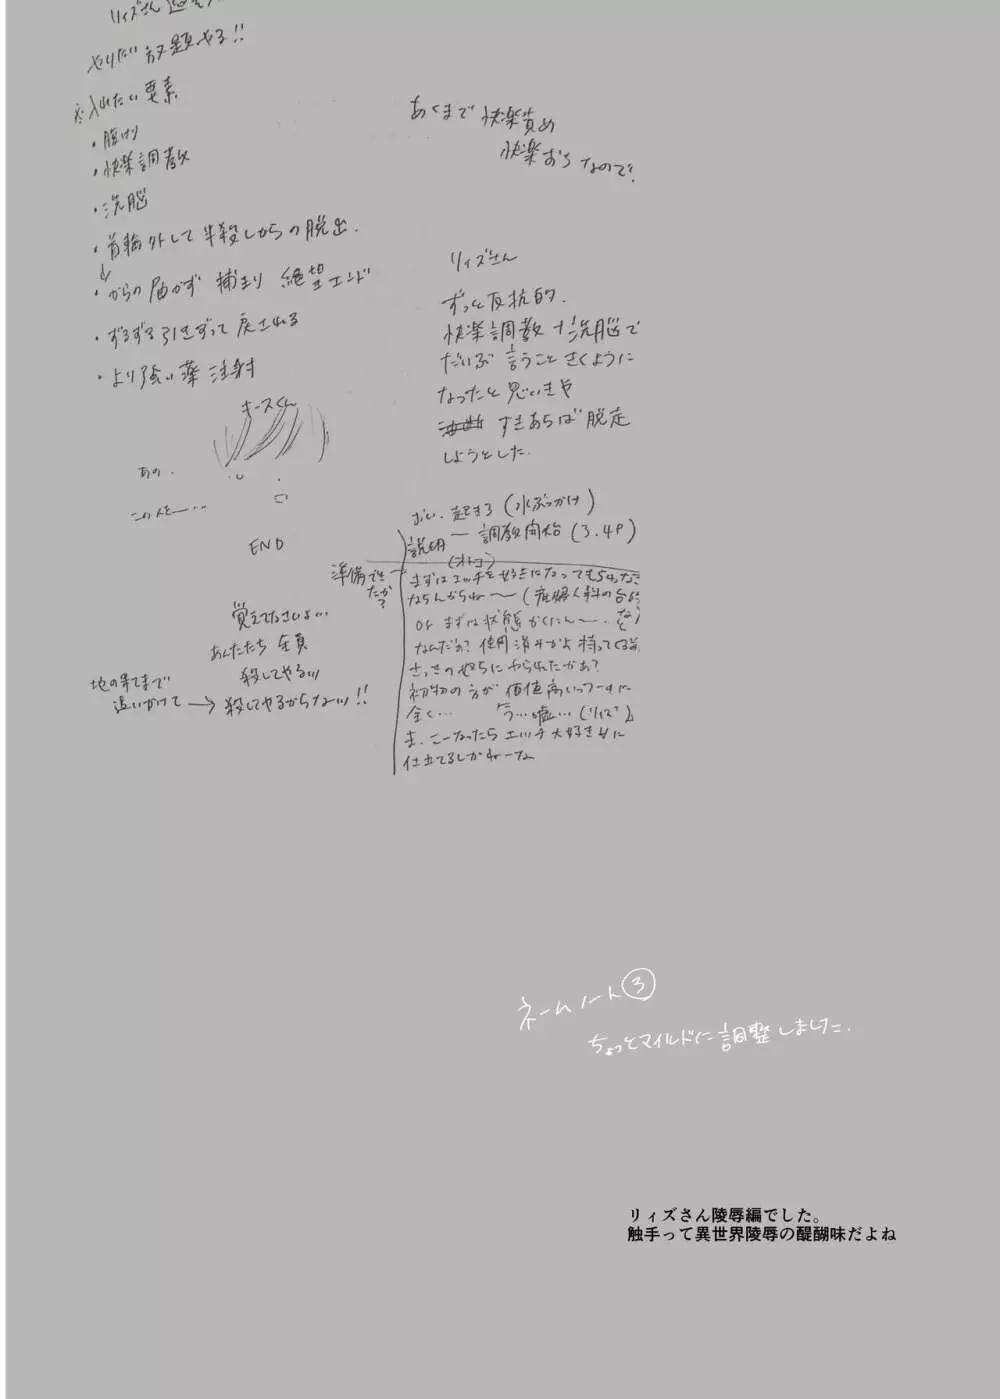 リィズさん
やりたい放題やる!!
※入れたい要素
・腹けり
・快楽調教
・洗脳
・首輪外して半殺しからの脱出.
・からの届かず 捕まり 絶望エンド
・ずるずる引きずって戻される
・より強い薬注射
キースくん
あの.
この人を―…
END
覚えてなさいよ…
あんたたち 全員
殺してやる!!!
地の果てまで
追いかけて→殺してやるからなぁ!!
あくまで 快楽責め
快楽おち なので!
リィズさん
ずっと反抗的.
快楽調教+洗脳で
だいぶ 言うこときくように
なったと思いきや
すきあらば脱走
しようとした.
おい.起きろ(水ぶっかけ)
説明―調教開始(3.4P)
(オトコ)
準備できたか?
まずはエッチを好きになってもらわな
ならんからね～(産婦人科の台
or まずは状態かくにん～.
なんだぁ?使用済みかよ 持ってくる前
さっきの奴らにやられたかぁ?
初物の方が価値高いっつーのに
全く… う…嘘…(リィズ)
ま.こーなったらエッチ大好き女に
仕立てるしかねーな
ネームノート③
ちょっとマイルドに調整しました.
リィズさん陵辱編でした。
触手って異世界陵辱の醍醐味だよね